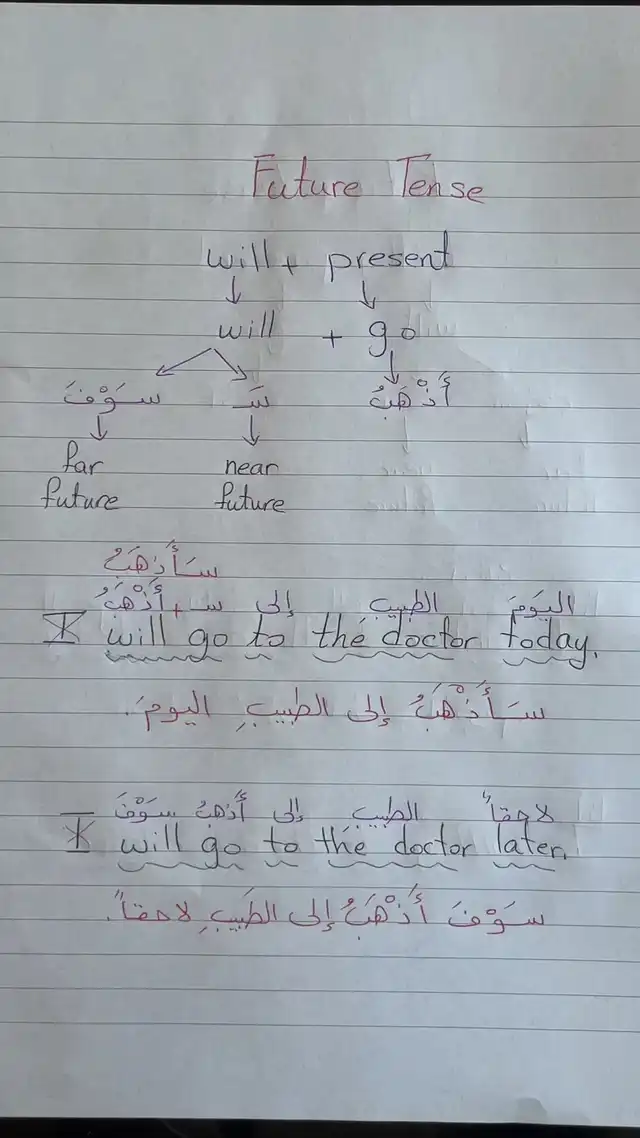 Future Tense
will + present
will + go
سَوْفَ سَـ أَذْهَبُ
far near
future future
سَأَذْهَبُ
اليَوْمَ الطبيب إلى سـ + أَذْهَبُ
I will go to the doctor today.
سَأَذْهَبُ إلى الطَبيبِ اليومَ.
لاحقاً الطبيب إلى أَذهبُ سَوْفَ
I will go to the doctor later.
سَوْفَ أَذْهَبُ إلى الطَبيبِ لاحقاً.